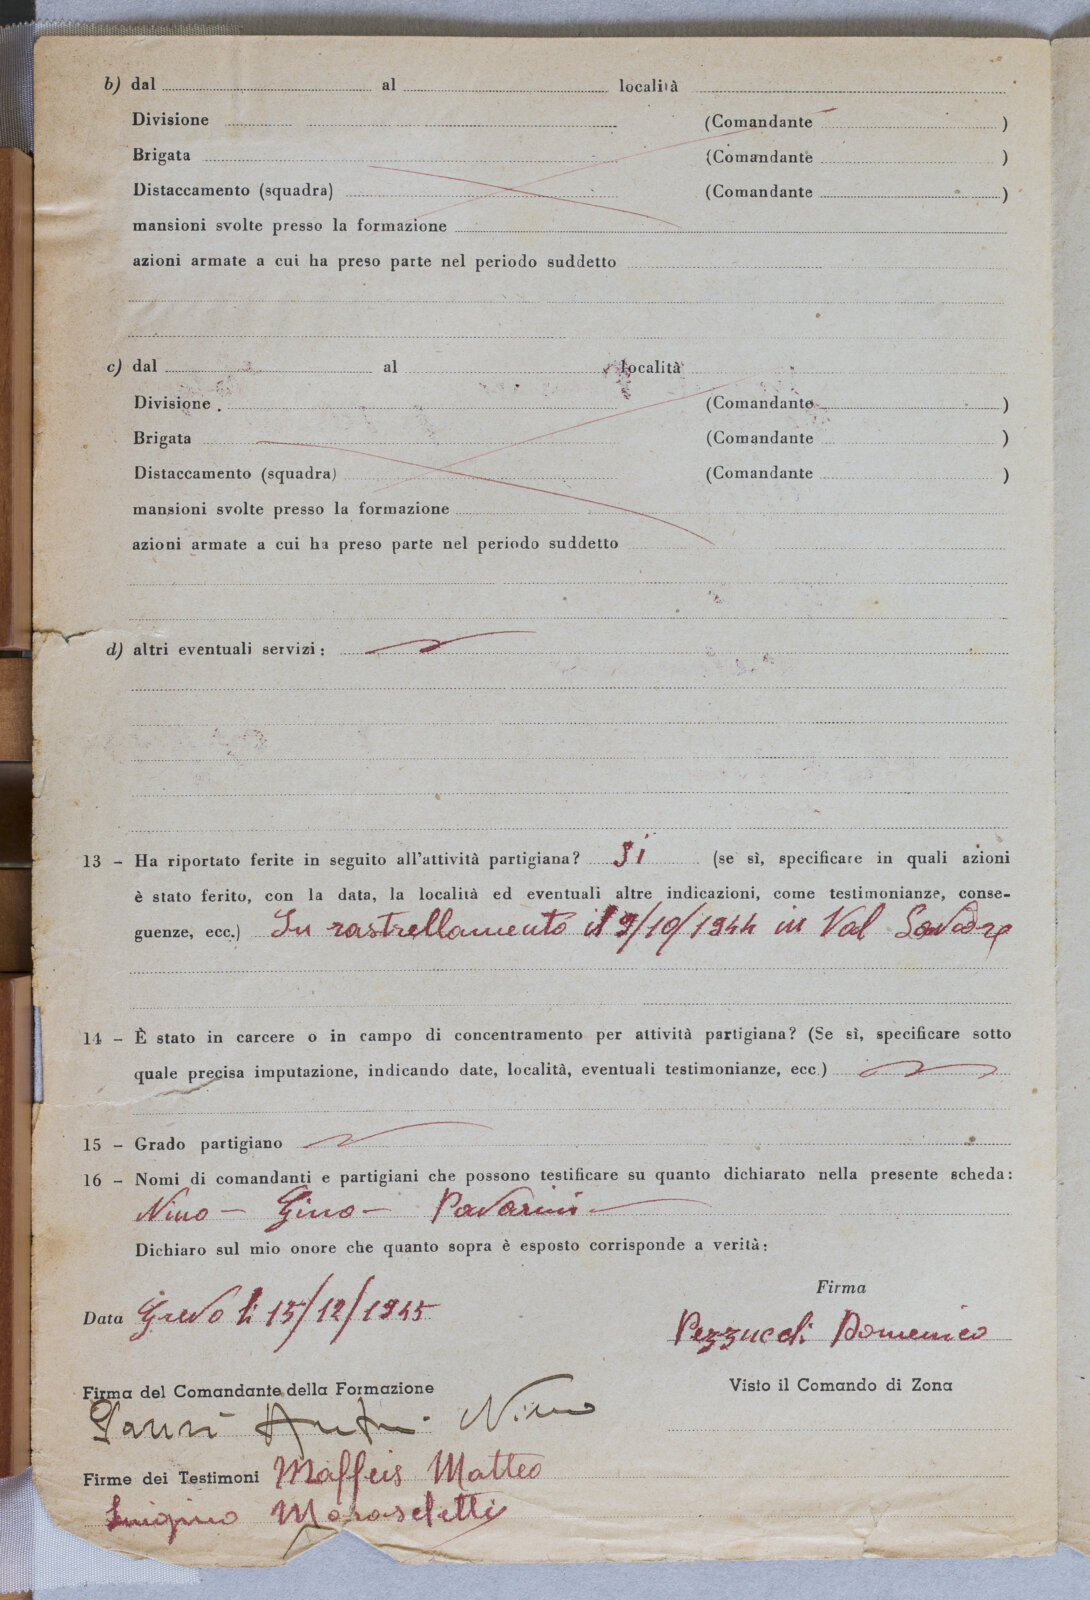 b) dal al località
Divisione (Comandante )
Brigata (Comandante )
Distaccamento (squadra) (Comandante )
mansioni svolte presso la formazione
azioni armate a cui ha preso parte nel periodo suddetto
c) dal al località
Divisione (Comandante )
Brigata (Comandante )
Distaccamento (squadra) (Comandante )
mansioni svolte presso la formazione
azioni armate a cui ha preso parte nel periodo suddetto
d) altri eventuali servizi:
13 - Ha riportato ferite in seguito all'attività partigiana? Si (se sì, specificare in quali azioni
è stato ferito, con la data, la località ed eventuali altre indicazioni, come testimonianze, conse-
guenze, ecc.) In rastrellamento il 9/10/1944 in Val
14 - È stato in carcere o in campo di concentramento per attività partigiana? (Se sì, specificare sotto
quale precisa imputazione, indicando date, località, eventuali testimonianze, ecc.)
15 - Grado partigiano
16 - Nomi di comandanti e partigiani che possono testificare su quanto dichiarato nella presente scheda:
Nino - Gino - Pavarini
Dichiaro sul mio onore che quanto sopra è esposto corrisponde a verità:
Firma
Data Grevo li 15/12/1945
Domenico
Firma del Comandante della Formazione
Visto il Comando di Zona
Nino
Firme dei Testimoni Maffeis Matteo
Luigino